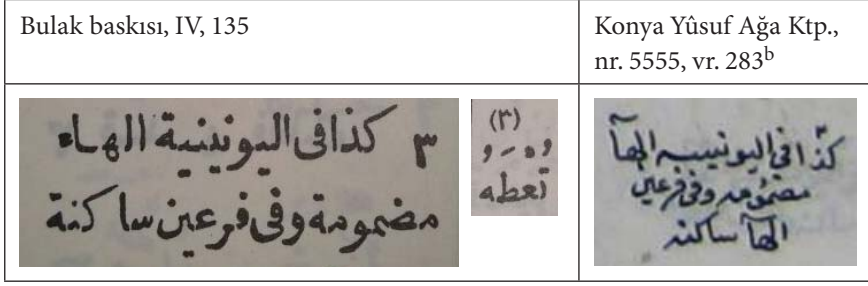 Bulak baskısı, IV, 135
Konya Yûsuf Ağa Ktp.,
nr. 5555, vr. 283b
٣ كذافى اليونينية الهاء
مضمومة وفى فرعين ساكنة
(٣)
تُعْطَهُ
كذا فى اليونينيه الهآ
مضمومه وفى فرعين
الهآ ساكنه